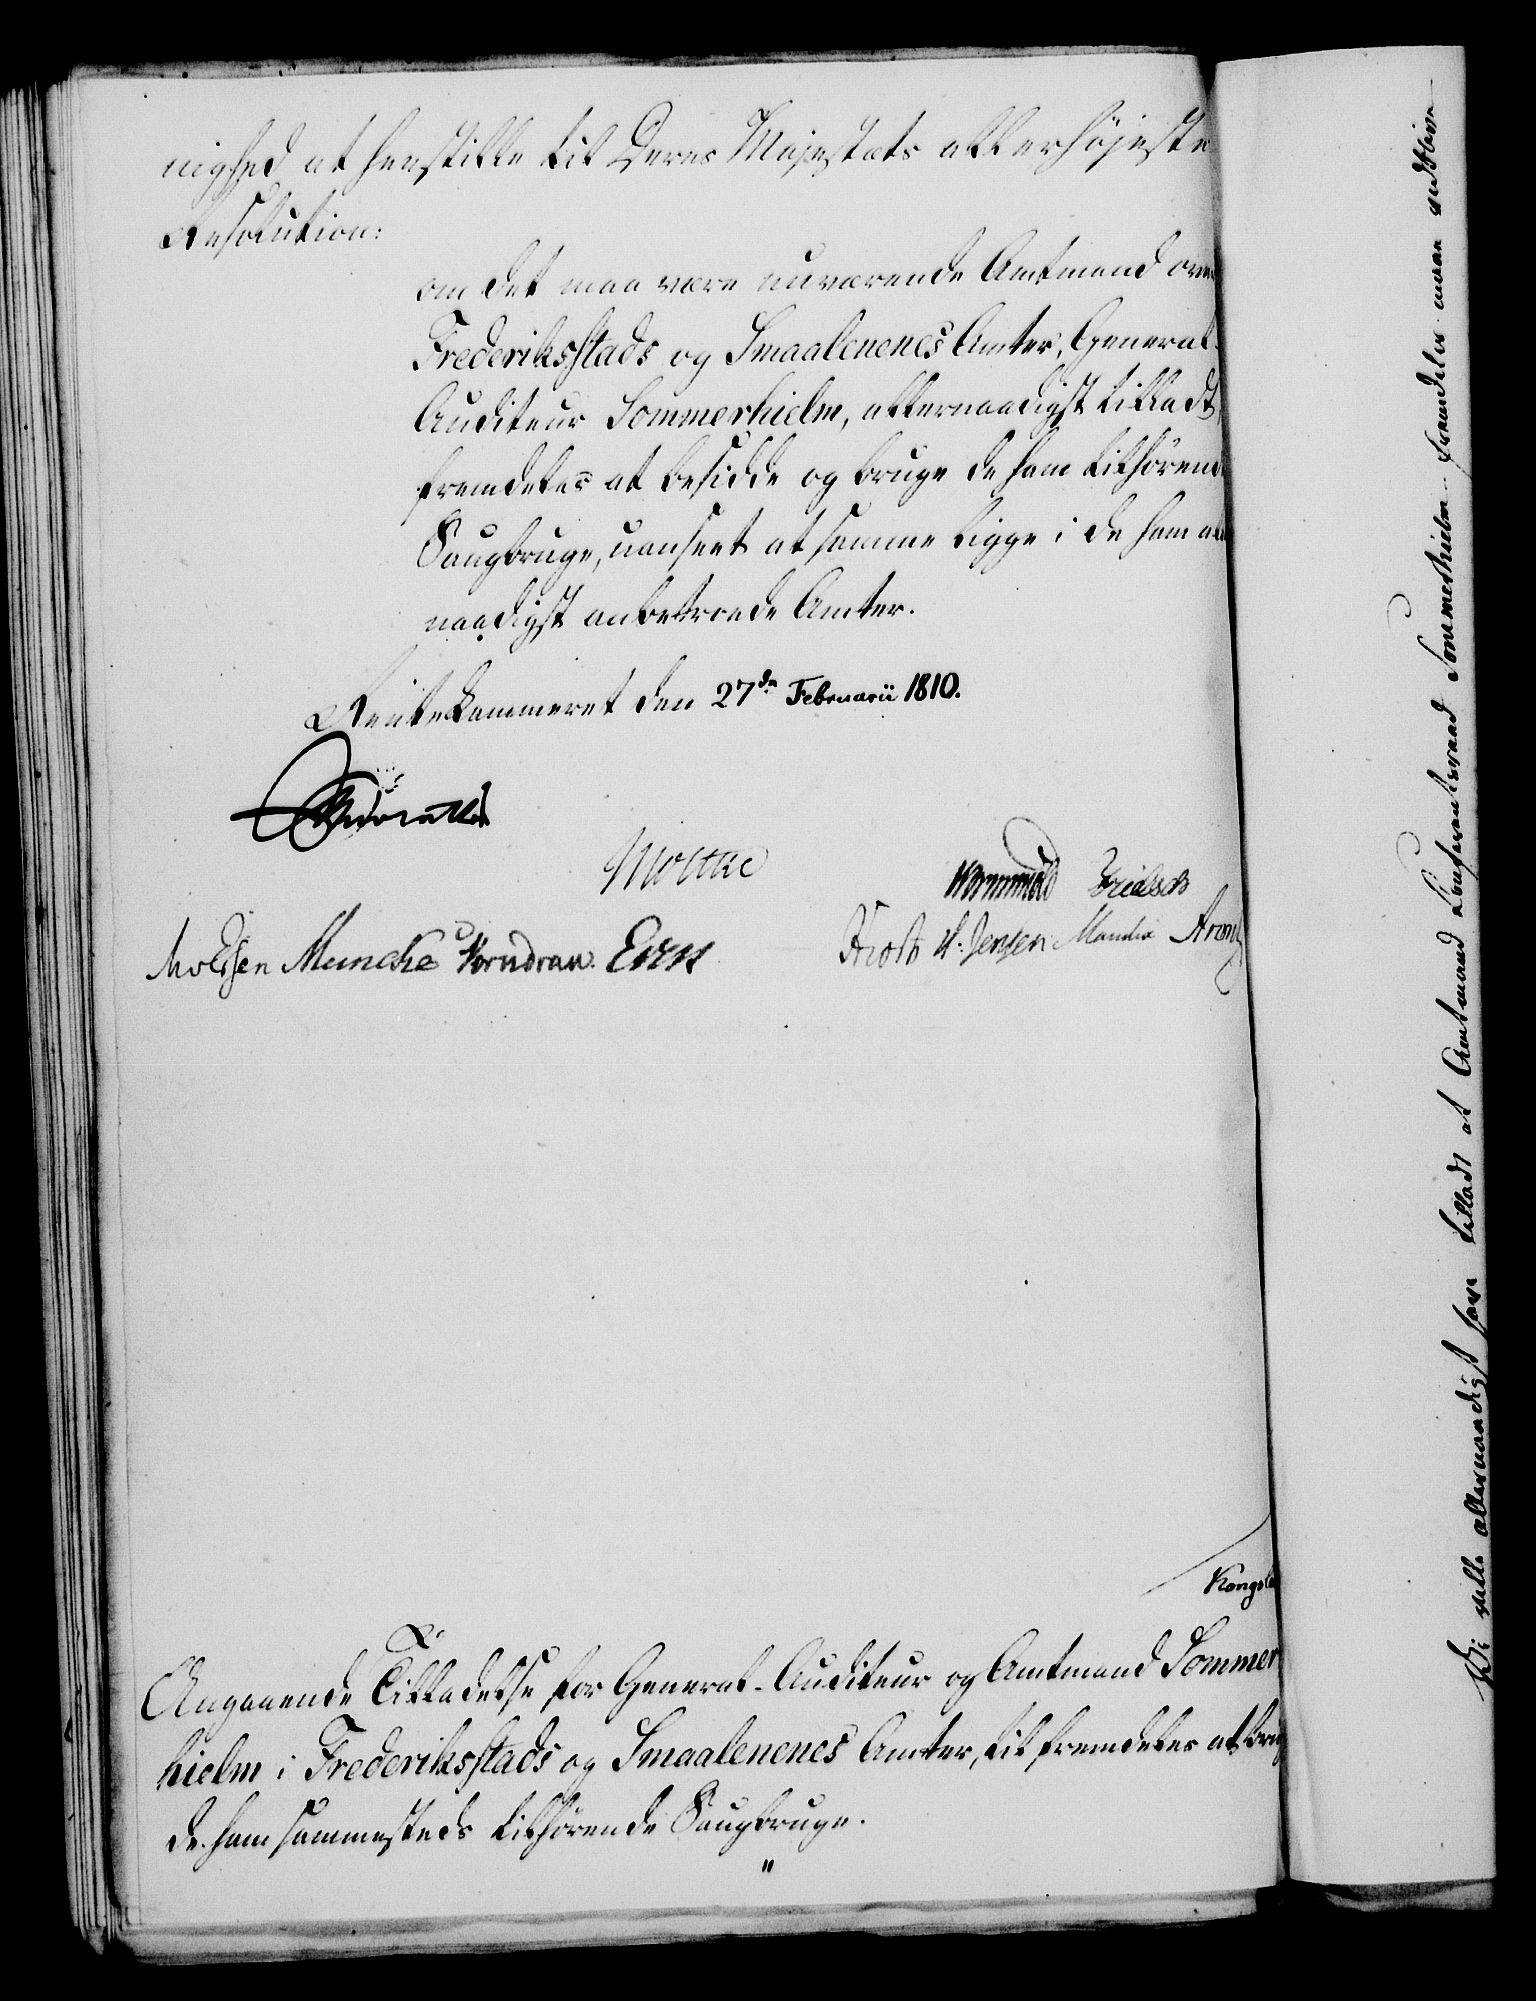 nighed at henstille til Deres Majestæts allerhøjeste
Resolution:
om det maa være nuværende Amtmand over
Frederiksstads og Smaalenenes Amter, General-
Auditeur Sommerhielm, allernaadigst tilladt,
fremdeles at besidde og bruge de ham tilhørende
Saugbruge, uanseet at samme ligge i de ham aller
naadigst anbetroede Amter.
Rentekammeret den 27de Februarii 1810.
Moltke
Wormskiold
Knoff H: Jensen Manthe
Moldsen Muncke Korndran
Kongs
Angaaende Tilladelse for General-Auditeur og Amtmand Sommer
hielm i Frederiksstads og Smaalenenes Amter, til fremdeles at brug
de ham sammesteds tilhørende Saugbruge.
"
Vi ville allernaadigst have tilladt at Amtmand Conferentsraad Sommerhielm fremdeles maae